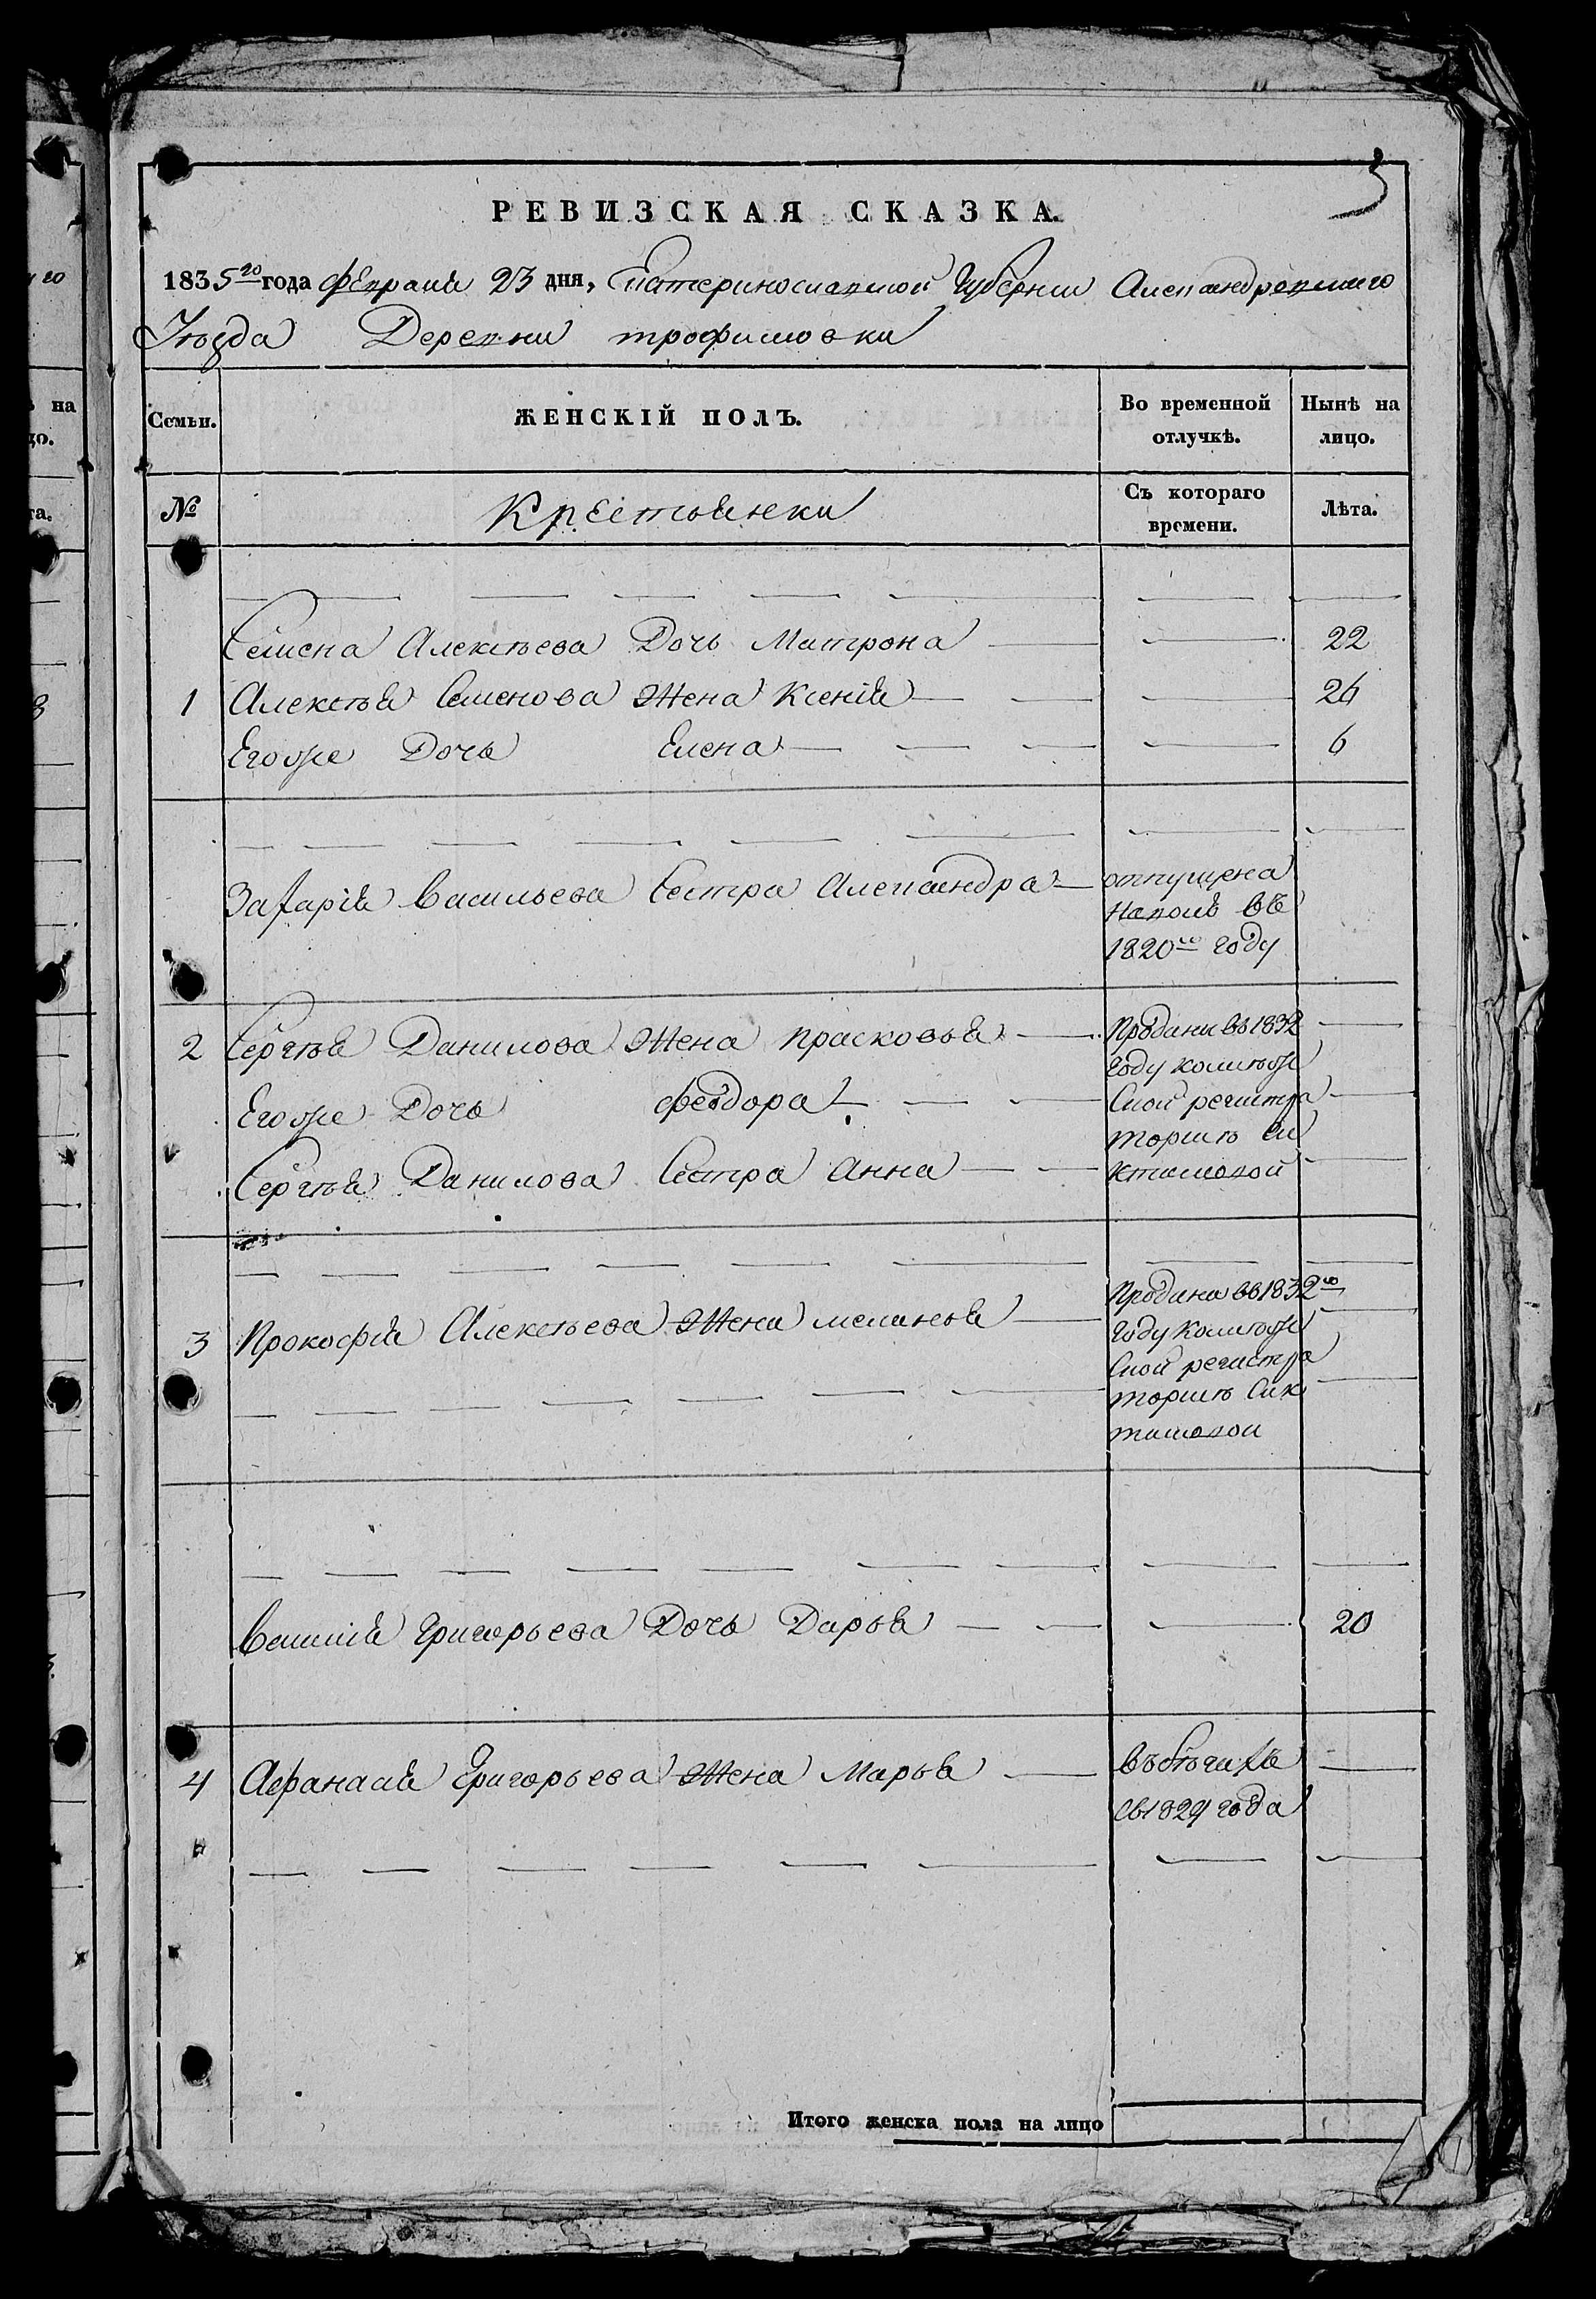 3
РЕВИЗСКАЯ СКАЗКА.
1835го года февраля 23 дня, Екатеринославской Губернии Александровскаго
Уезда Деревни трофимовки
Семьи. ЖЕНСКІЙ ПОЛЪ. Во временной отлучкѣ. Нынѣ на лицо.
№ Крестьянки Съ котораго времени. Лѣта.
Семена Алексѣева Дочь Матрона 22
1 Алексѣя Семенова Жена Ксенія 26
Егоже Дочь Елена 6
Захарія Васильева Сестра Александра отпущена
на волю въ
1820м году
2 Сергѣя Данилова Жена Прасковья Проданы въ 1832
году колитъж
Егоже Дочь феодора ской регистра
торшѣ Си
Сергѣя Данилова Сестра Анна ктамовой
Продана въ 1832м
3 Прокофія Алексѣева Жена меланья году колитъж
ской регистра
торшѣ Сик
тамовой
Василія Григорьева Дочь Дарья 20
4 Афанасія Григорьева Жена Марья въ бѣгахъ
съ 1824 года
Итого женска пола на лицо